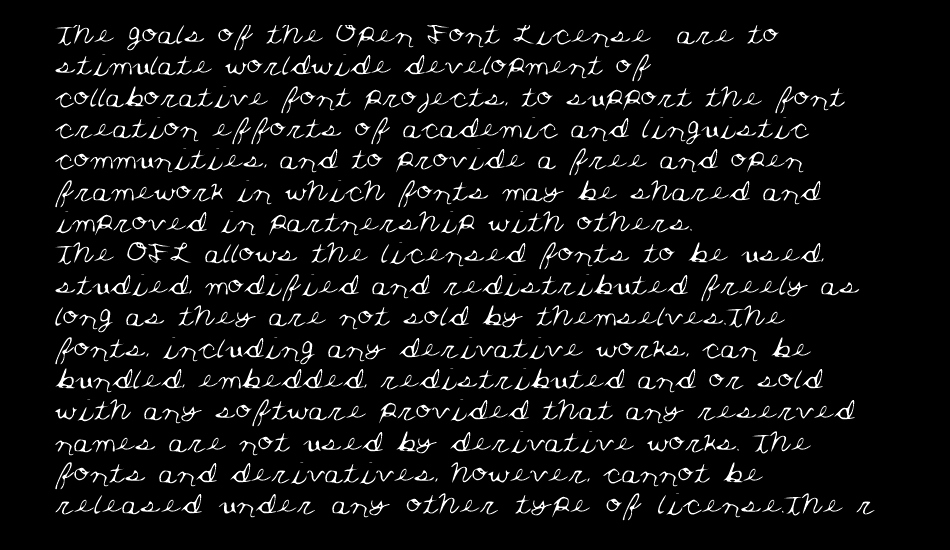 The goals of the Open Font License are to
stimulate worldwide development of
collaborative font projects, to support the font
creation efforts of academic and linguistic
communities, and to provide a free and open
framework in which fonts may be shared and
improved in partnership with others.
The OFL allows the licensed fonts to be used,
studied, modified and redistributed freely as
long as they are not sold by themselves.The
fonts, including any derivative works, can be
bundled, embedded, redistributed and or sold
with any software provided that any reserved
names are not used by derivative works. The
fonts and derivatives, however, cannot be
released under any other type of license.The r